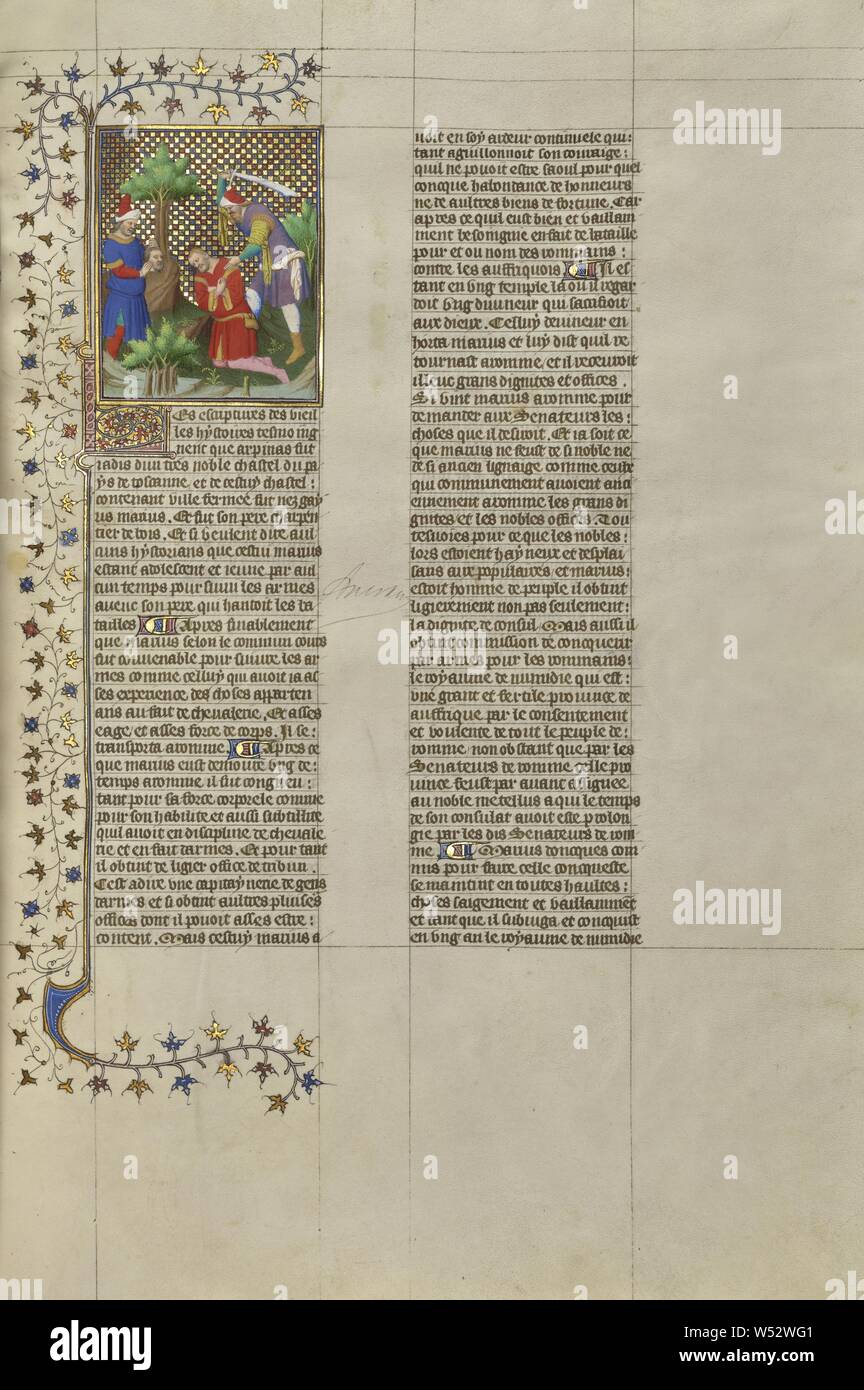 Les escriptures des vieil
les hystoires tesmoing
nent que arpinas fut
iadis dun tres noble chastel du pa
ys de toscanne, et de cestuy chastel:
contenant ville fermee fut nez gay
us marius. Et fut son pere charpen
tier de bois. Et si veulent dire aul
cuns hystorians que cestui marius
estant adolescent et ieune par aul
cun temps pour suiui les armes
auenc son pere qui hantoit les ba
tailles Apres finablement
que marius selon le commun cours
fut conuenable pour suiure les ar
mes comme celluy qui auoit ia as
ses experience des choses apparten
ans au fait de cheualerie, Et asses
eage, et asses force de corps. Il se:
transporta a romme. Apres ce
que marius eust demoure vng de:
temps a romme il fut congneu:
tant pour sa force corporele comme
pour son habilite et aussi subtillite
quil auoit en discipline de cheuale
rie et en fait darmes. Et pour tant
il obtint de ligier office de tribun.
Cest a dire vne capitaynerie de gens
darmes et si obtint aultres pluises
offices dont il pouoit asses estre:
content. Mais cestuy marius a
uoit en soy ardeur continuele qui:
tant aguillonnoit son couraige:
quil ne pouoit estre saoul pour quel
concque habondance de honneurs
ne de aultres biens de fortune. Car
apres ce quil eust bien et vaillam
ment besoingne en fait de bataille
pour et ou nom des rommains:
contre les auffriquois Il es
tant en vng temple la ou il regar
doit vng diuineur qui sacrifioit
aux dieux. Celluy deuineur en
horta marius et luy dist quil re
tournast a romme, et il receuroit
illeuc grans dignites et offices.
Si vint marius a romme pour
demander aux Senateurs les:
choses que il desiroit. Et ia soit ce
que marius ne feust de si noble ne
de si ancien lignaige comme ceulx
qui communement auoient anci
ennement a romme les grans di
gnites et les nobles offices. Tou
tesuoies pour ce que les nobles:
lors estoient hayneux et desplai
sans aux populaires, et marius:
estoit homme de peuple il obtint
ligierement non pas seulement:
la dignite de consul. Mais aussi il
obtint commission de concquerir
par armes pour les rommains:
le royaume de numidie qui est:
vne grant et fertile prouince de
auffrique par le consentement
et voulente de tout le peuple de:
romme, non obstant que par les
Senateurs de romme celle pro
uince feust par auant assignee
au noble metellus a qui le temps
de son consulat auoit este prolon
gie par les dis Senateurs de rom
me Marius doncques com
mis pour faire celle conqueste
se maintint en toutes haultes:
choses saigement et vaillamment
et tant que il subiuga et conquist
en vng an le royaume de numidie
alamy
alamy
Image ID: W52WG1
www.alamy.com